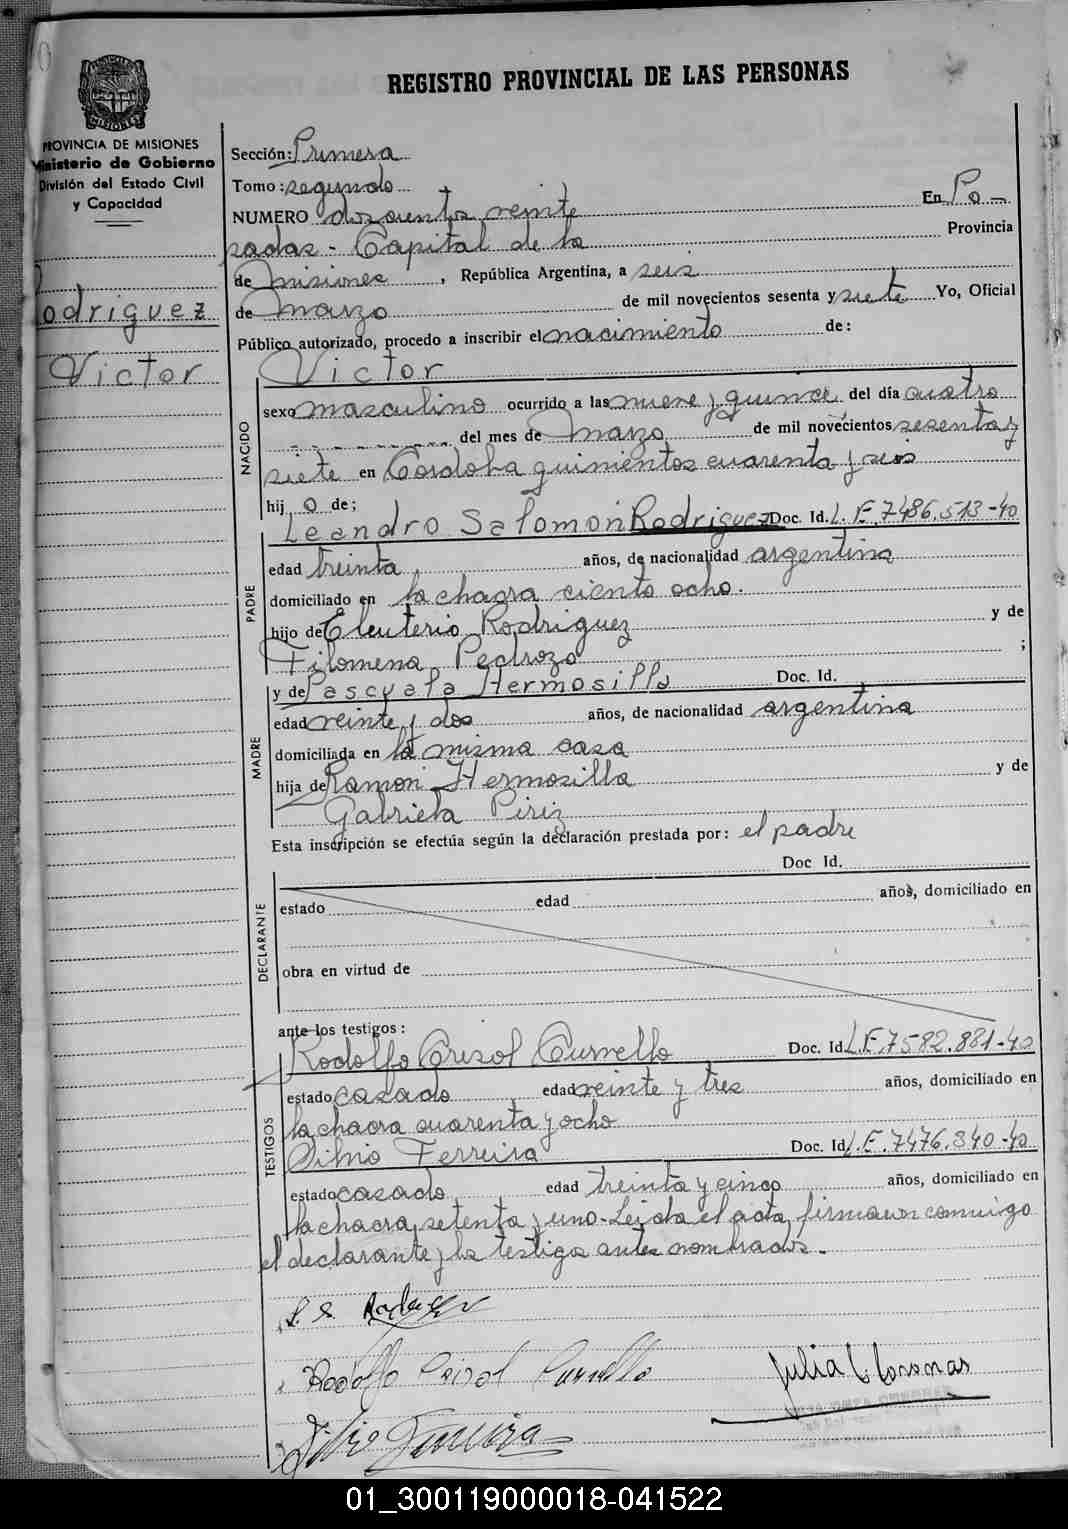 REGISTRO PROVINCIAL DE LAS PERSONAS
PROVINCIA DE MISIONES
Ministerio de Gobierno
División del Estado Civil
y Capacidad
Rodriguez
Victor
Sección: Primera
Tomo: segundo
NUMERO doscientos veinte En Po-
sadas - Capital de la Provincia
de Misiones, República Argentina, a seis
de Marzo de mil novecientos sesenta y siete Yo, Oficial
Público autorizado, procedo a inscribir el nacimiento de:
NACIDO
Victor
sexo masculino ocurrido a las nueve y quince del día cuatro
del mes de Marzo de mil novecientos sesenta y
siete en Cordoba quinientos cuarenta y seis
hijo de;
PADRE
Leandro Salomon Rodriguez Doc. Id. L. E. 7486.513-40
edad treinta años, de nacionalidad argentina
domiciliado en la chacra ciento ocho.
hijo de Eleuterio Rodriguez y de
Filomena Pedrozo ;
MADRE
y de Pascuala Hermosilla Doc. Id.
edad veinte y dos años, de nacionalidad argentina
domiciliada en la misma casa
hija de Ramon Hermosilla y de
Gabriela Piriz
Esta inscripción se efectúa según la declaración prestada por: el padre
DECLARANTE
Doc Id.
estado edad años, domiciliado en
obra en virtud de
ante los testigos:
TESTIGOS
Rodolfo Crisol Curvello Doc. Id L.E.7582.881-40
estado casado edad veinte y tres años, domiciliado en
la chacra cuarenta y ocho
Silvio Ferreira Doc. Id L.E.7476.340-40
estado casado edad treinta y cinco años, domiciliado en
la chacra setenta y uno-Leida el acta, firmaron conmigo
el declarante y los testigos antes nombrados.-
L. S. Rodriguez
Rodolfo Crisol Curvello
Julia
Silvio Ferreira
01_300119000018-041522